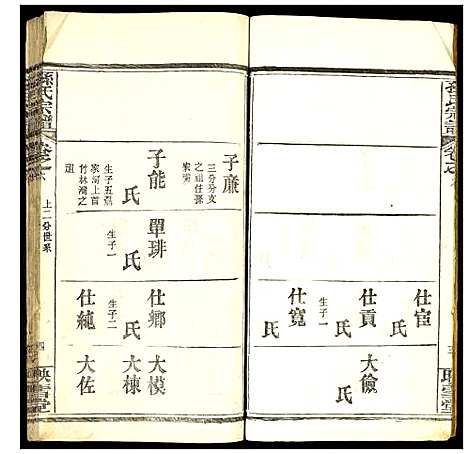 仕宦
仕貢
氏
生子一
仕寬
氏
大儉
氏
孫氏宗譜
上二分世系
映雪堂
子廉
三分分支
之祖住孫
家灣
子能
氏
生子五嘉
家河上首
竹林灣之
祖
單琲
氏
生子一
仕鄉
氏
生子二
仕純
大模
大棟
大佐
孫氏宗譜
映雪堂